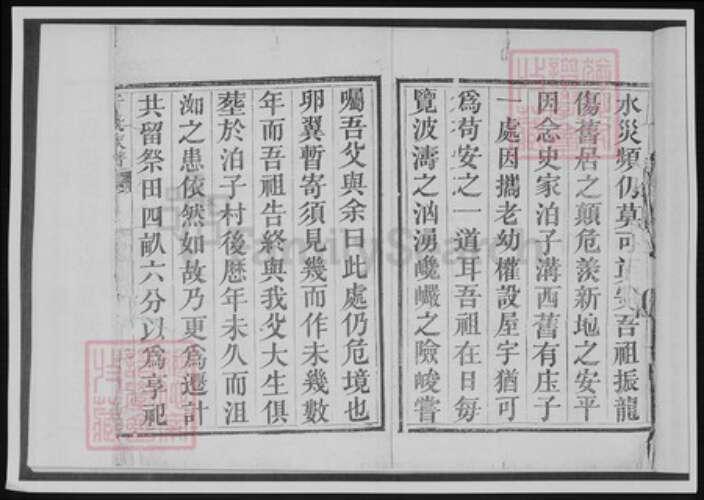 水災頻仍莫可
吾祖振龍
傷舊居之顛危羨新地之安平
因念史家泊子溝西舊有庄子
一處因攜老幼權設屋宇猶可
爲苟安之一道耳吾祖在日每
覽波濤之汹湧巉巗之險峻嘗
囑吾父與余曰此處仍危境也
卵翼暫寄須見幾而作未幾數
年而吾祖告終與我父大生俱
塟於泊子村後歷年未久而沮
洳之患依然如故乃更爲遷計
共留祭田四畝六分以爲享祀
FamilySearch